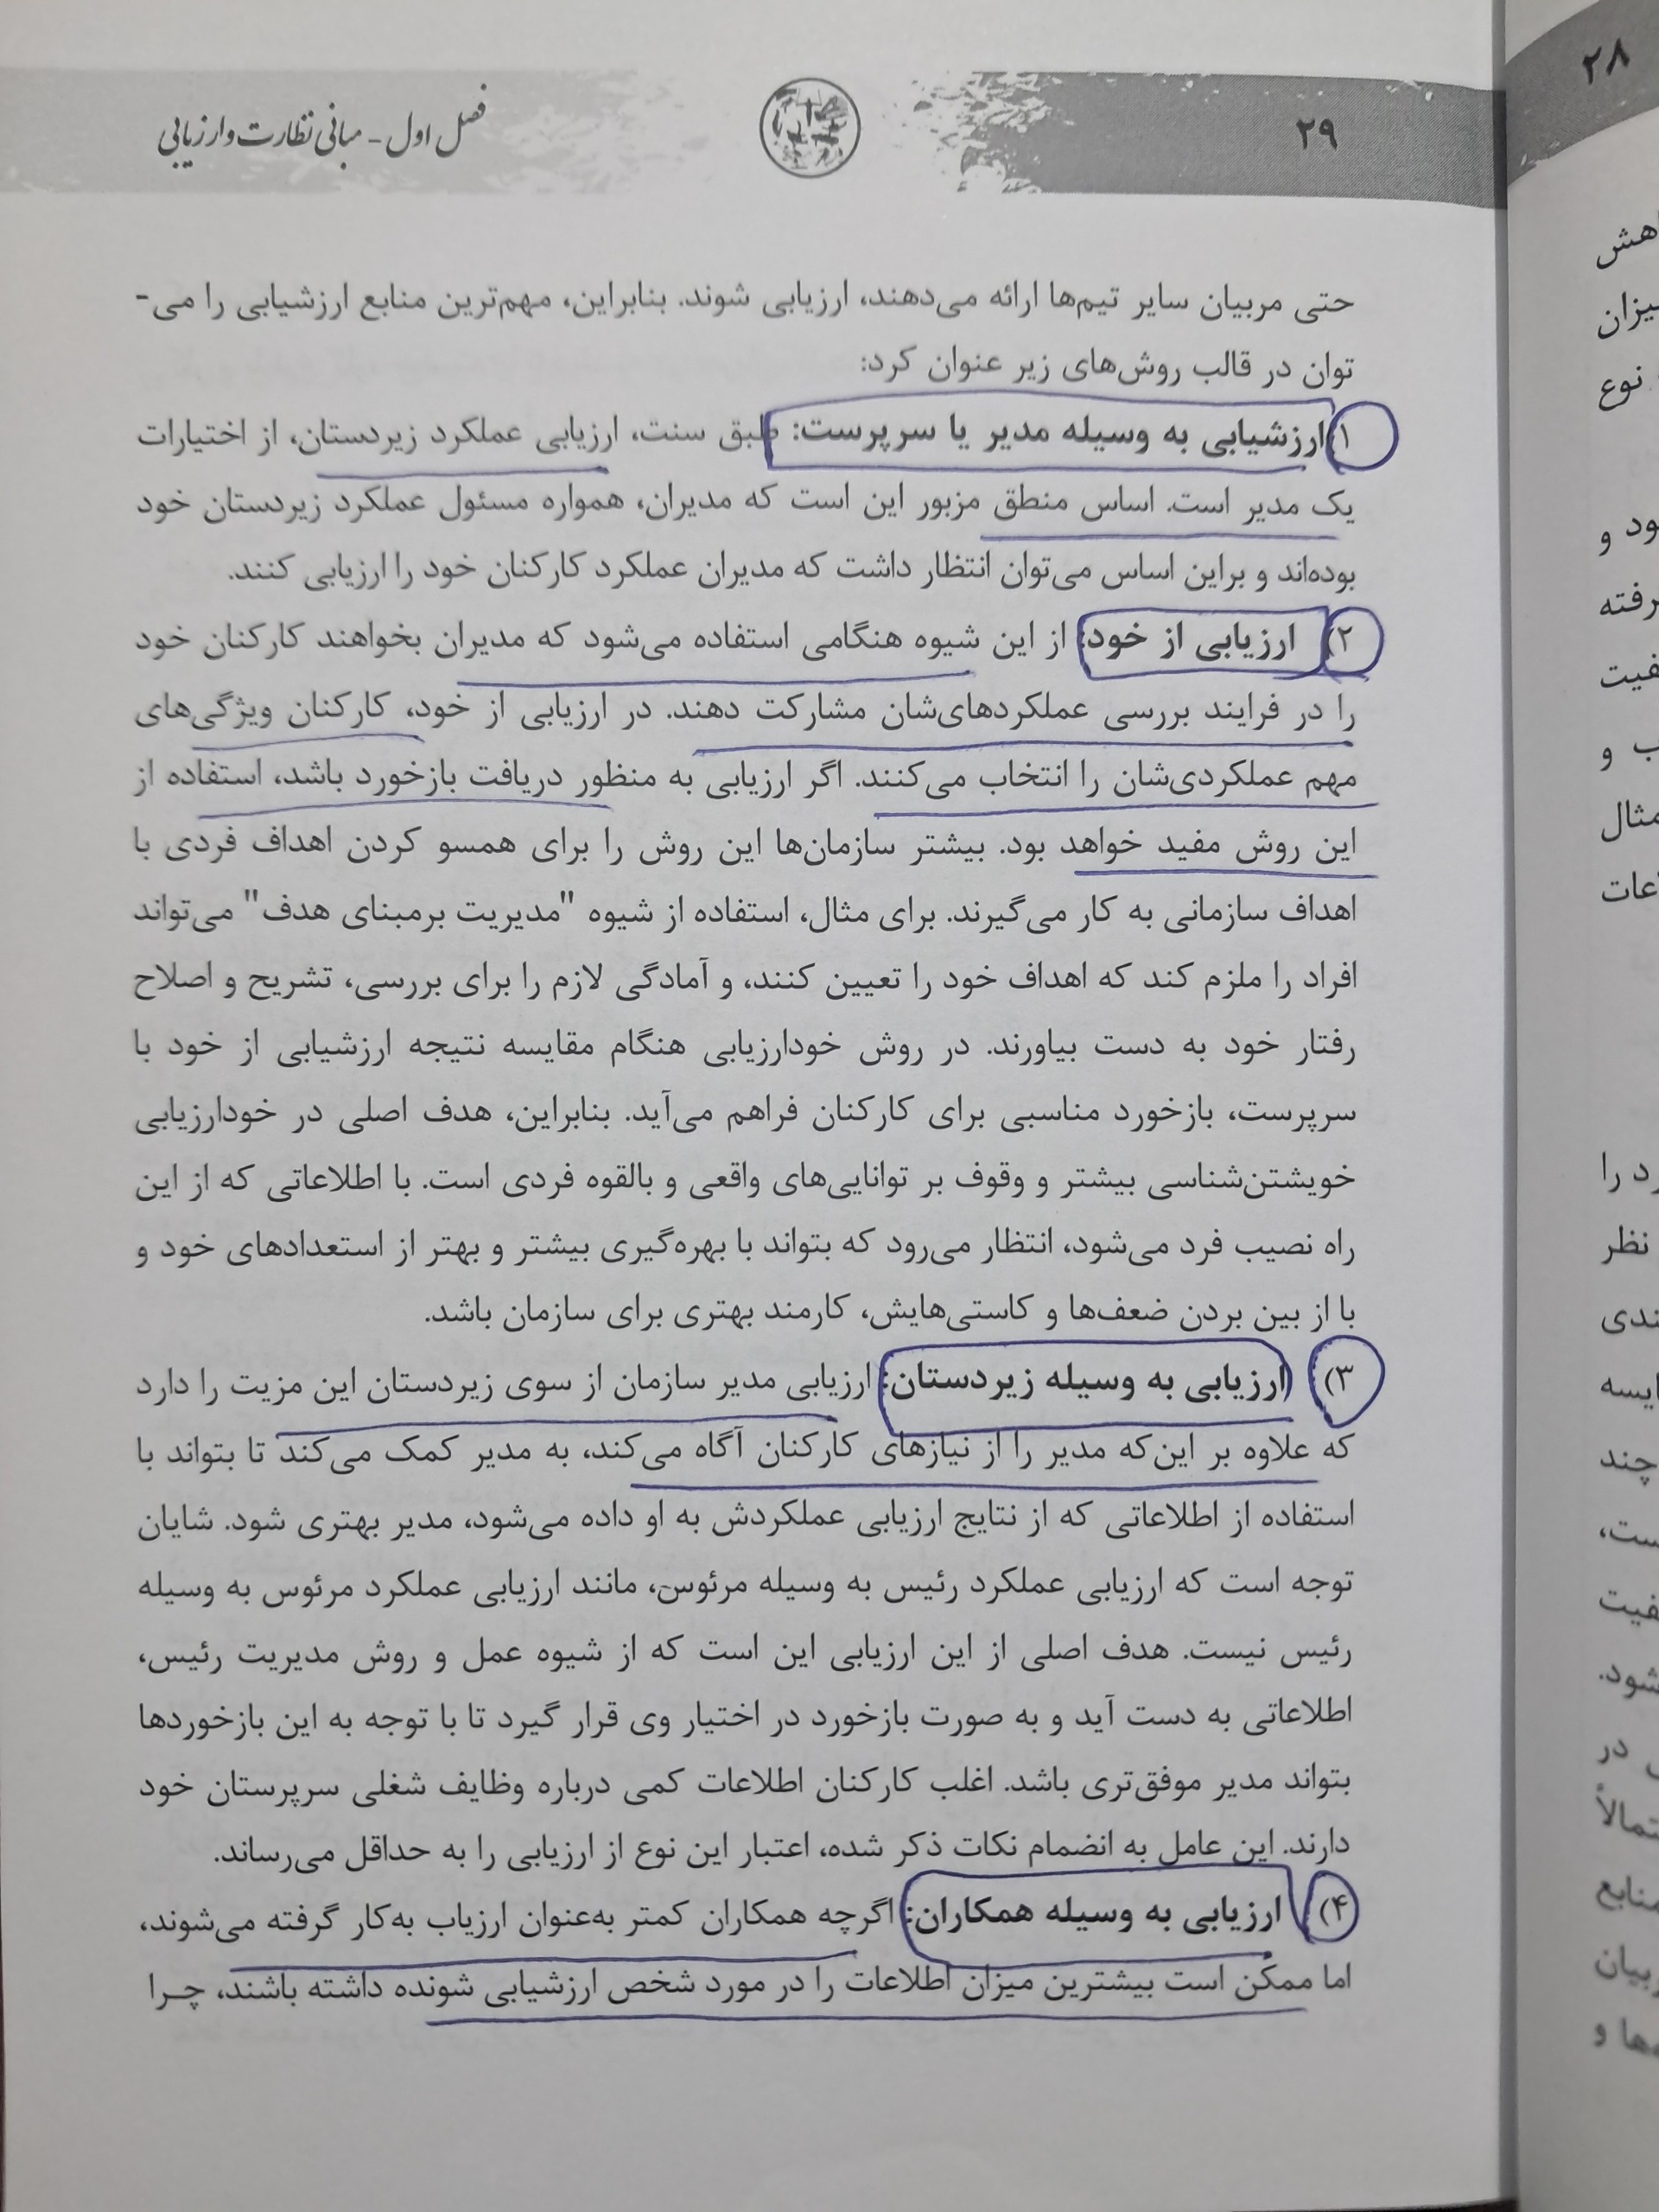 فصل اول - مبانی نظارت و ارزیابی
۲۹
حتی مربیان سایر تیم‌ها ارائه می‌دهند، ارزیابی شوند. بنابراین، مهم‌ترین منابع ارزشیابی را می-
توان در قالب روش‌های زیر عنوان کرد:
۱) ارزشیابی به وسیله مدیر یا سرپرست: طبق سنت، ارزیابی عملکرد زیردستان، از اختیارات
یک مدیر است. اساس منطق مزبور این است که مدیران، همواره مسئول عملکرد زیردستان خود
بوده‌اند و براین اساس می‌توان انتظار داشت که مدیران عملکرد کارکنان خود را ارزیابی کنند.
۲) ارزیابی از خود: از این شیوه هنگامی استفاده می‌شود که مدیران بخواهند کارکنان خود
را در فرایند بررسی عملکردهای‌شان مشارکت دهند. در ارزیابی از خود، کارکنان ویژگی‌های
مهم عملکردی‌شان را انتخاب می‌کنند. اگر ارزیابی به منظور دریافت بازخورد باشد، استفاده از
این روش مفید خواهد بود. بیشتر سازمان‌ها این روش را برای همسو کردن اهداف فردی با
اهداف سازمانی به کار می‌گیرند. برای مثال، استفاده از شیوه "مدیریت برمبنای هدف" می‌تواند
افراد را ملزم کند که اهداف خود را تعیین کنند، و آمادگی لازم را برای بررسی، تشریح و اصلاح
رفتار خود به دست بیاورند. در روش خودارزیابی هنگام مقایسه نتیجه ارزشیابی از خود با
سرپرست، بازخورد مناسبی برای کارکنان فراهم می‌آید. بنابراین، هدف اصلی در خودارزیابی
خویشتن‌شناسی بیشتر و وقوف بر توانایی‌های واقعی و بالقوه فردی است. با اطلاعاتی که از این
راه نصیب فرد می‌شود، انتظار می‌رود که بتواند با بهره‌گیری بیشتر و بهتر از استعدادهای خود و
با از بین بردن ضعف‌ها و کاستی‌هایش، کارمند بهتری برای سازمان باشد.
۳) ارزیابی به وسیله زیردستان: ارزیابی مدیر سازمان از سوی زیردستان این مزیت را دارد
که علاوه بر این‌که مدیر را از نیازهای کارکنان آگاه می‌کند، به مدیر کمک می‌کند تا بتواند با
استفاده از اطلاعاتی که از نتایج ارزیابی عملکردش به او داده می‌شود، مدیر بهتری شود. شایان
توجه است که ارزیابی عملکرد رئیس به وسیله مرئوس، مانند ارزیابی عملکرد مرئوس به وسیله
رئیس نیست. هدف اصلی از این ارزیابی این است که از شیوه عمل و روش مدیریت رئیس،
اطلاعاتی به دست آید و به صورت بازخورد در اختیار وی قرار گیرد تا با توجه به این بازخوردها
بتواند مدیر موفق‌تری باشد. اغلب کارکنان اطلاعات کمی درباره وظایف شغلی سرپرستان خود
دارند. این عامل به انضمام نکات ذکر شده، اعتبار این نوع از ارزیابی را به حداقل می‌رساند.
۴) ارزیابی به وسیله همکاران: اگرچه همکاران کمتر به‌عنوان ارزیاب به‌کار گرفته می‌شوند،
اما ممکن است بیشترین میزان اطلاعات را در مورد شخص ارزشیابی شونده داشته باشند، چـرا
۲۸
نوع
ود و
ب و
د را
نظر
چند
شود.
در